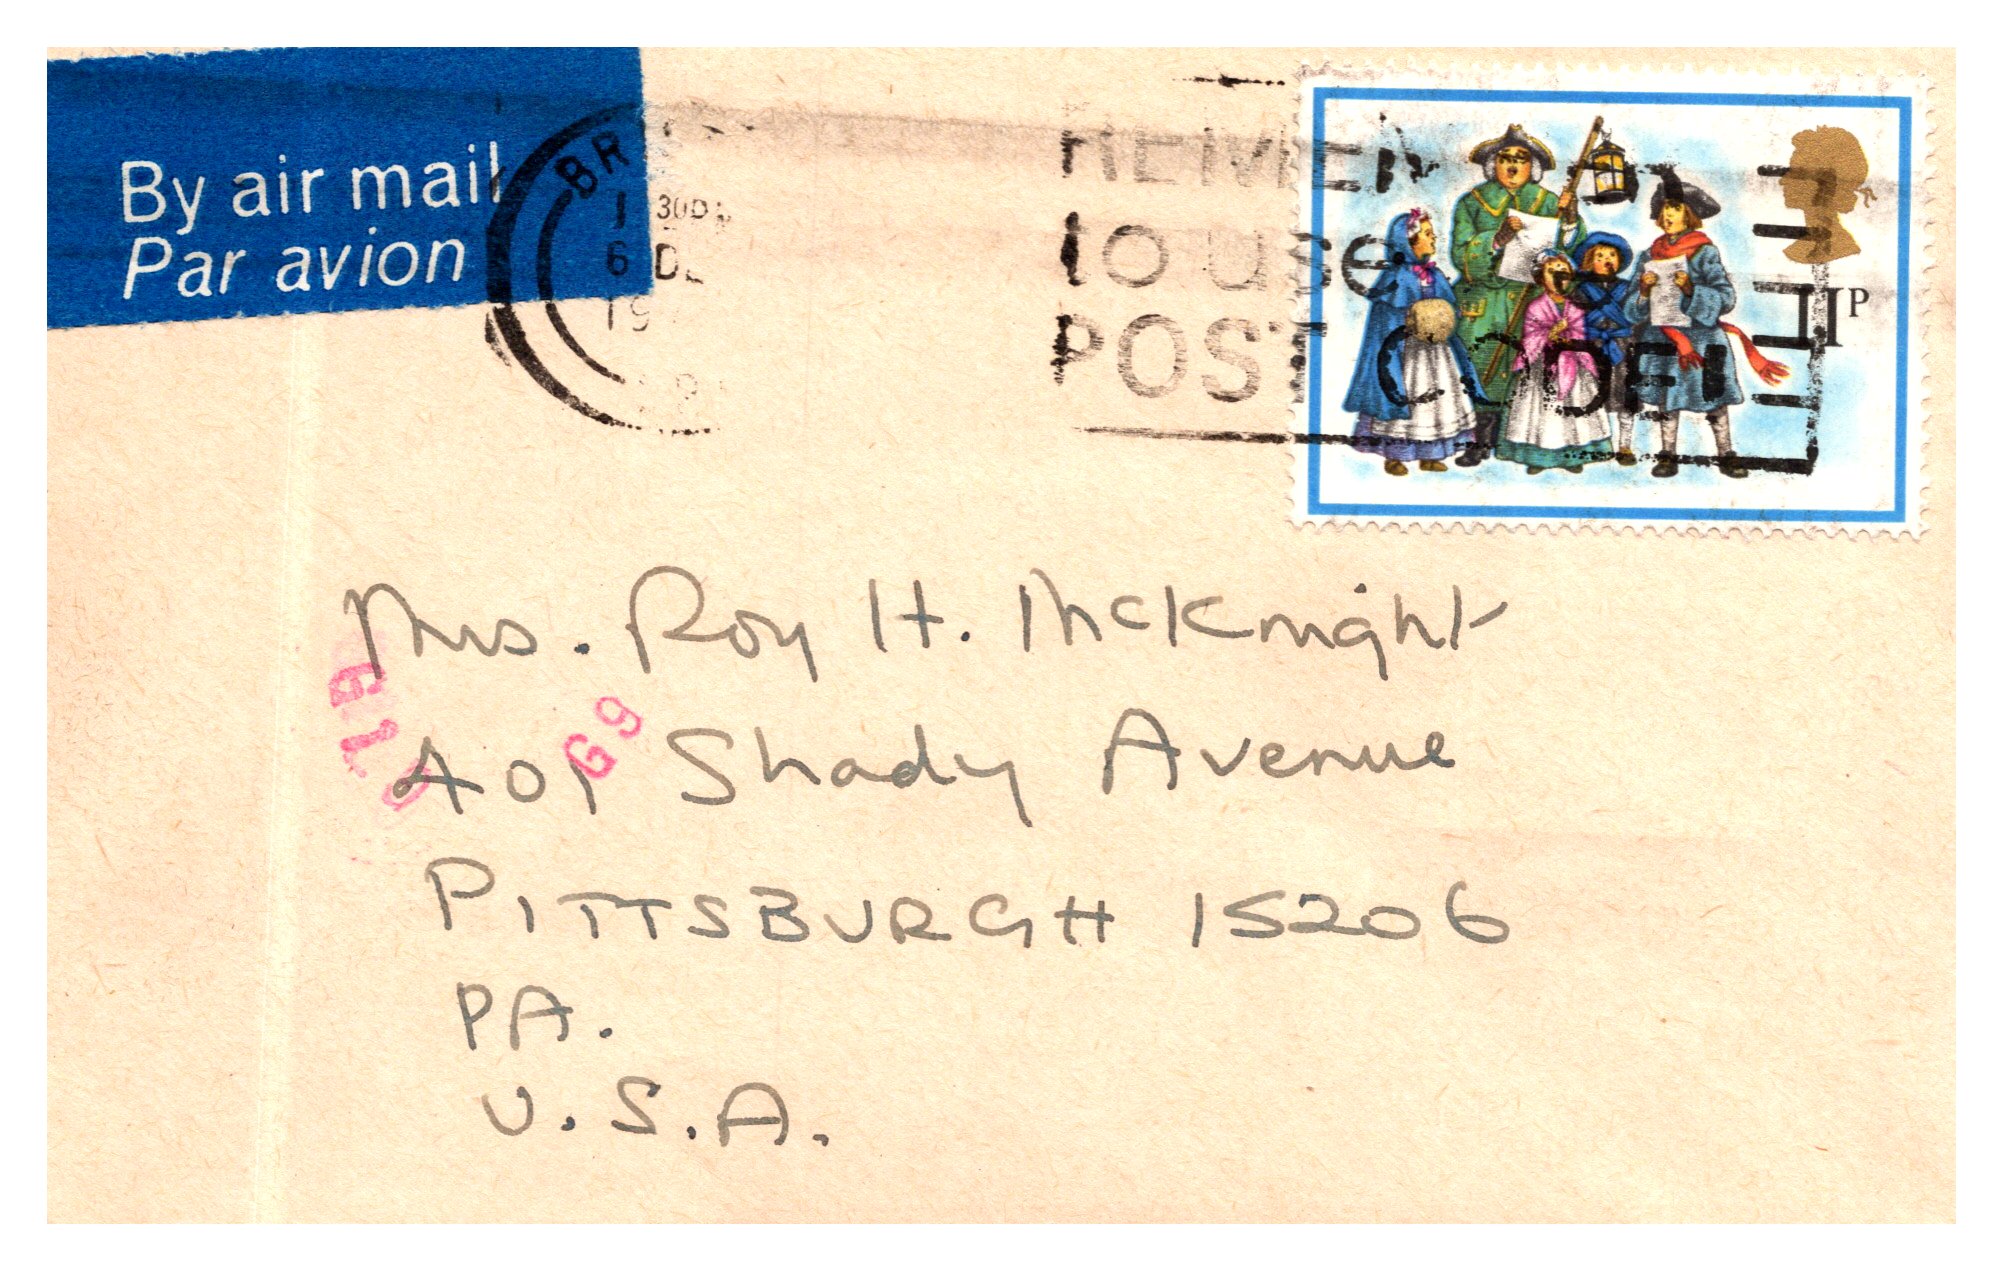 By air mail
Par avion
1 30P
6 DE
19
to use
POST CODE
11P
Mrs. Roy H. McKnight
401 Shady Avenue
PITTSBURGH 15206
PA.
U.S.A.
G9